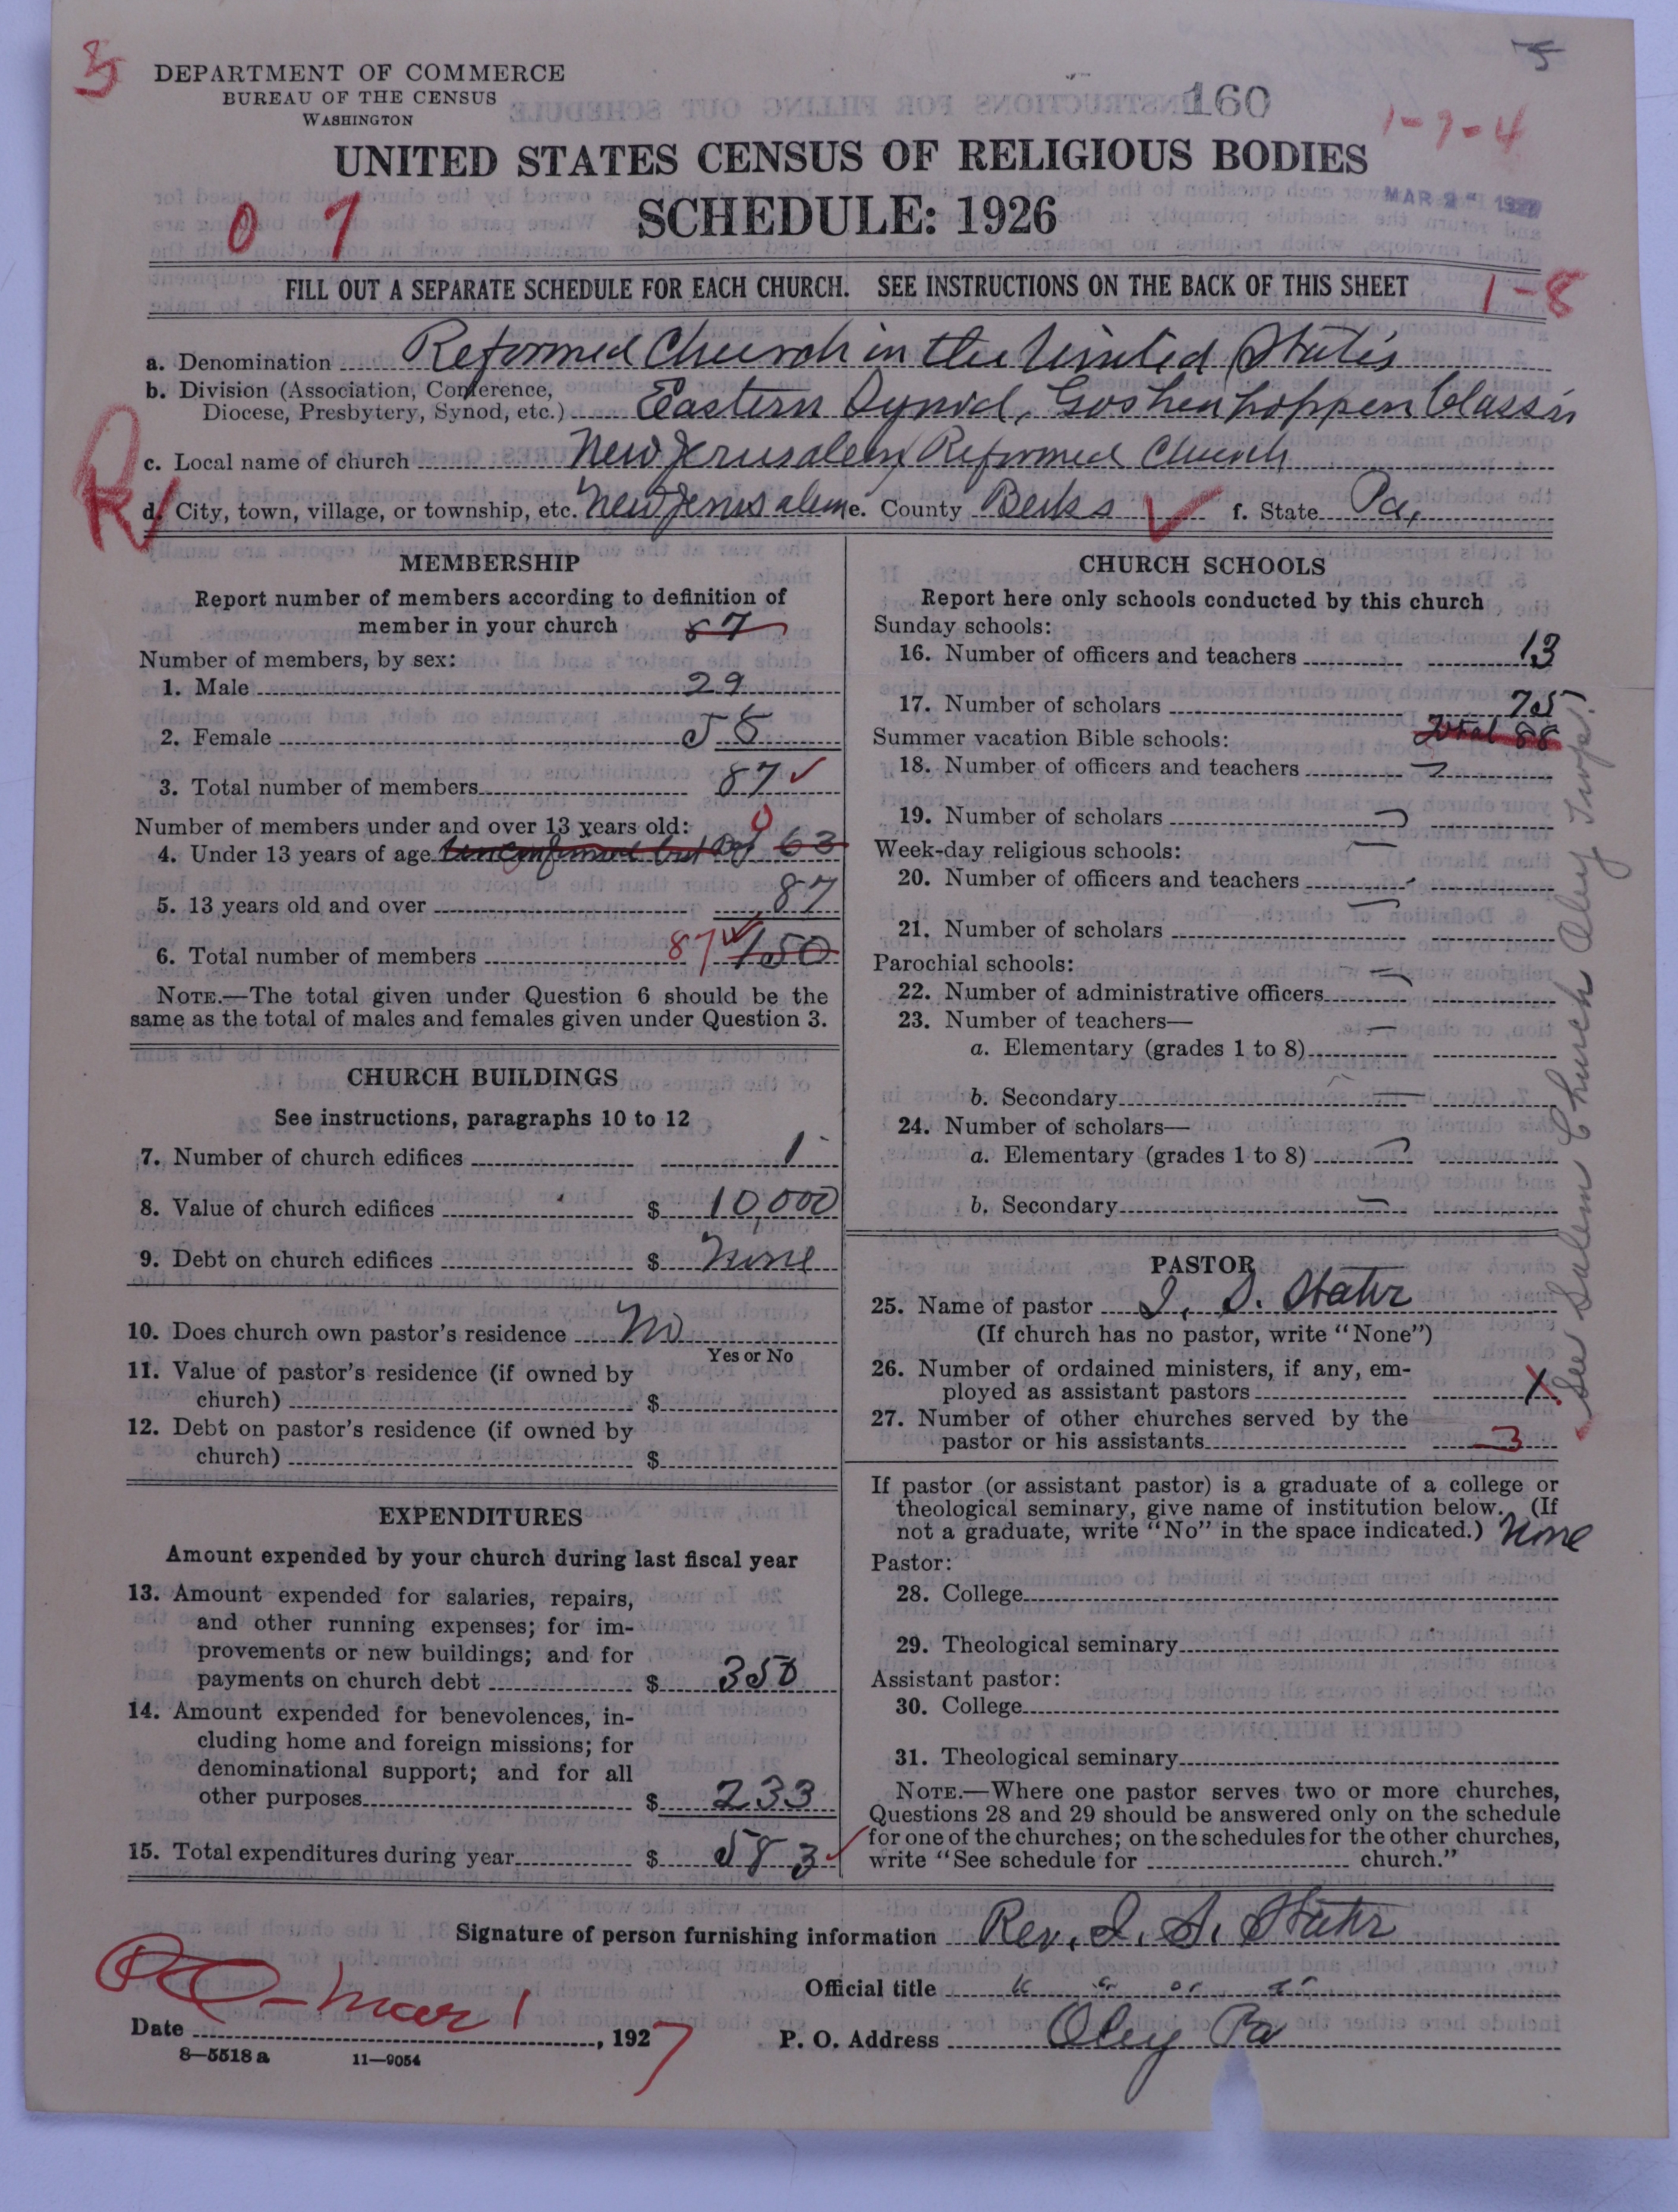 5
5
DEPARTMENT OF COMMERCE
BUREAU OF THE CENSUS
WASHINGTON
160
1-7-4
UNITED STATES CENSUS OF RELIGIOUS BODIES
SCHEDULE: 1926
MAR 2 1927
0 7
FILL OUT A SEPARATE SCHEDULE FOR EACH CHURCH. SEE INSTRUCTIONS ON THE BACK OF THIS SHEET
1-8
a. Denomination Reformed Church in the United States
b. Division (Association, Conference,
Diocese, Presbytery, Synod, etc.) Eastern Synod, Goshenhoppen Classis
c. Local name of church New Jerusalem Reformed Church
d. City, town, village, or township, etc. New Jerusalem e. County Berks f. State Pa,
MEMBERSHIP
Report number of members according to definition of
member in your church 87
Number of members, by sex:
1. Male 29
2. Female 58
3. Total number of members 87
Number of members under and over 13 years old: 0
4. Under 13 years of age unconfirmed but 63
5. 13 years old and over 87
6. Total number of members 87 150
NOTE.—The total given under Question 6 should be the
same as the total of males and females given under Question 3.
CHURCH BUILDINGS
See instructions, paragraphs 10 to 12
7. Number of church edifices 1
8. Value of church edifices $ 10,000
9. Debt on church edifices $ None
10. Does church own pastor's residence No
Yes or No
11. Value of pastor's residence (if owned by
church) $
12. Debt on pastor's residence (if owned by
church) $
EXPENDITURES
Amount expended by your church during last fiscal year
13. Amount expended for salaries, repairs,
and other running expenses; for im-
provements or new buildings; and for
payments on church debt $ 350
14. Amount expended for benevolences, in-
cluding home and foreign missions; for
denominational support; and for all
other purposes $ 233
15. Total expenditures during year $ 583
CHURCH SCHOOLS
Report here only schools conducted by this church
Sunday schools:
16. Number of officers and teachers 13
17. Number of scholars 75
Total 88
Summer vacation Bible schools:
18. Number of officers and teachers
19. Number of scholars
Week-day religious schools:
20. Number of officers and teachers
21. Number of scholars
Parochial schools:
22. Number of administrative officers
23. Number of teachers—
a. Elementary (grades 1 to 8)
b. Secondary
24. Number of scholars—
a. Elementary (grades 1 to 8)
b. Secondary
PASTOR
25. Name of pastor I. S. Stahr
(If church has no pastor, write "None")
26. Number of ordained ministers, if any, em-
ployed as assistant pastors
27. Number of other churches served by the
pastor or his assistants 3
If pastor (or assistant pastor) is a graduate of a college or
theological seminary, give name of institution below. (If
not a graduate, write "No" in the space indicated.) None
Pastor:
28. College
29. Theological seminary
Assistant pastor:
30. College
31. Theological seminary
NOTE.—Where one pastor serves two or more churches,
Questions 28 and 29 should be answered only on the schedule
for one of the churches; on the schedules for the other churches,
write "See schedule for church."
See Salem Church Oley Twp.
Signature of person furnishing information Rev. I. S. Stahr
Official title " " " "
Date Mar 1, 1927
P. O. Address Oley Pa
8—5518 a 11—9054